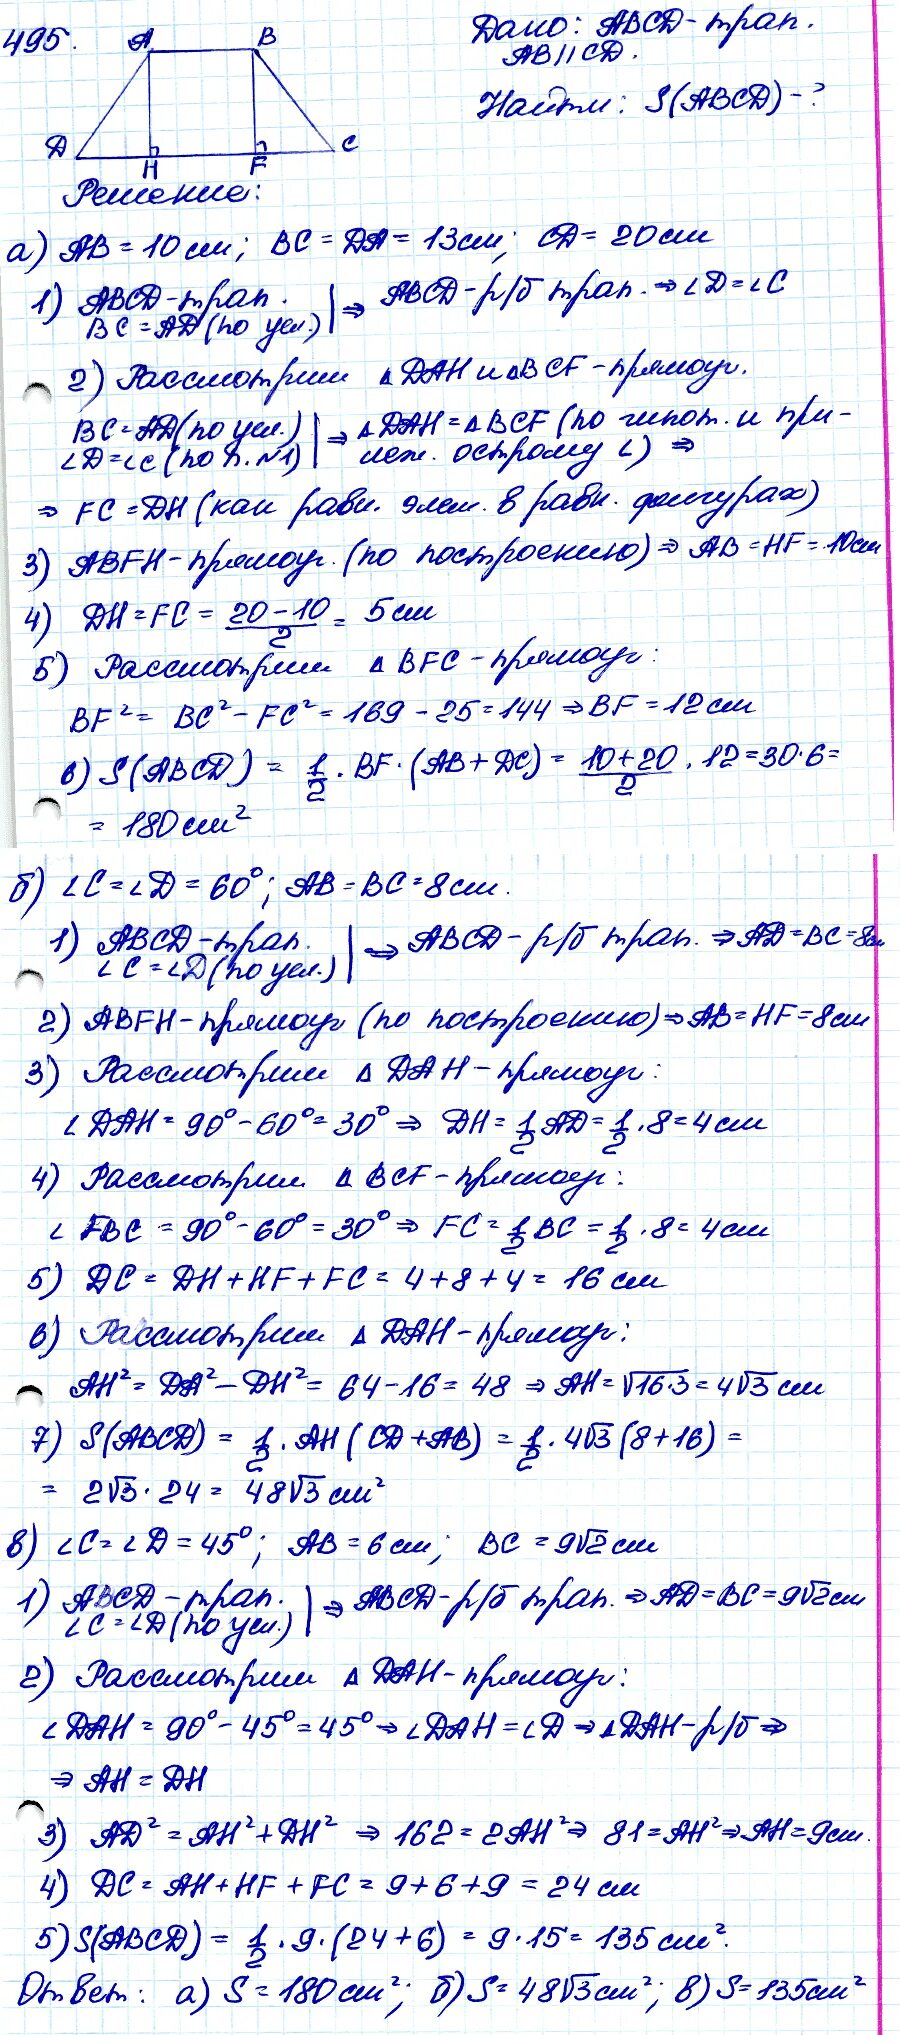 495.
A B
D H F C
Дано: ABCD - трап.
AB || CD.
Найти: S(ABCD) - ?
Решение:
а) AB = 10 см; BC = DA = 13 см; CD = 20 см
1) ABCD - трап. | ⇒ ABCD - р/б трап. ⇒ ∠D = ∠C
BC = AD (по усл.)
2) Рассмотрим △DAH и △BCF - прямоуг.
BC = AD (по усл.) | ⇒ △DAH = △BCF (по гипот. и при-
∠D = ∠C (по п. №1) леж. острому ∠) ⇒
⇒ FC = DH (как равн. элем. в равн. фигурах)
3) ABFH - прямоуг. (по построению) ⇒ AB = HF = 10 см
4) DH = FC = (20 - 10)/2 = 5 см
5) Рассмотрим △BFC - прямоуг:
BF² = BC² - FC² = 169 - 25 = 144 ⇒ BF = 12 см
6) S(ABCD) = 1/2 · BF · (AB + DC) = (10 + 20)/2 · 12 = 30 · 6 =
= 180 см²
б) ∠C = ∠D = 60°; AB = BC = 8 см.
1) ABCD - трап. | ⇒ ABCD - р/б трап. ⇒ AD = BC = 8 см
∠C = ∠D (по усл.)
2) ABFH - прямоуг (по построению) ⇒ AB = HF = 8 см
3) Рассмотрим △DAH - прямоуг:
∠DAH = 90° - 60° = 30° ⇒ DH = 1/2 AD = 1/2 · 8 = 4 см
4) Рассмотрим △BCF - прямоуг:
∠FBC = 90° - 60° = 30° ⇒ FC = 1/2 BC = 1/2 · 8 = 4 см
5) DC = DH + HF + FC = 4 + 8 + 4 = 16 см
6) Рассмотрим △DAH - прямоуг:
AH² = DA² - DH² = 64 - 16 = 48 ⇒ AH = √16·3 = 4√3 см
7) S(ABCD) = 1/2 · AH (CD + AB) = 1/2 · 4√3 (8 + 16) =
= 2√3 · 24 = 48√3 см²
в) ∠C = ∠D = 45°; AB = 6 см; BC = 9√2 см
1) ABCD - трап. | ⇒ ABCD - р/б трап. ⇒ AD = BC = 9√2 см
∠C = ∠D (по усл.)
2) Рассмотрим △DAH - прямоуг:
∠DAH = 90° - 45° = 45° ⇒ ∠DAH = ∠D ⇒ △DAH - р/б ⇒
⇒ AH = DH
3) AD² = AH² + DH² ⇒ 162 = 2AH² ⇒ 81 = AH² ⇒ AH = 9 см.
4) DC = AH + HF + FC = 9 + 6 + 9 = 24 см
5) S(ABCD) = 1/2 · 9 · (24 + 6) = 9 · 15 = 135 см².
Ответ: а) S = 180 см²; б) S = 48√3 см²; в) S = 135 см²